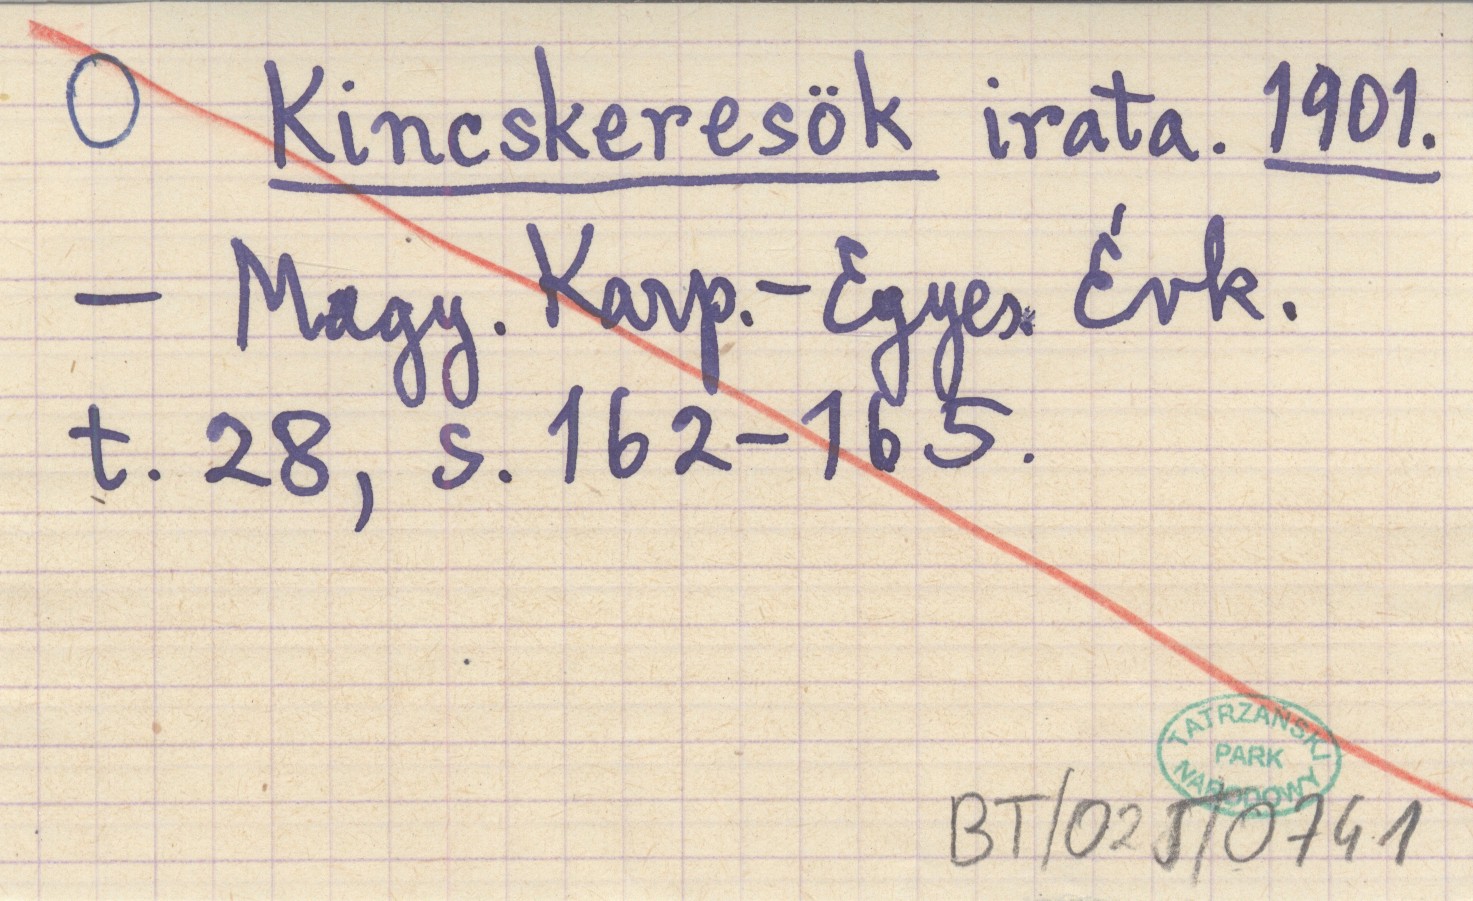 O Kincskeresök irata. 1901.
— Magy. Karp.-Egyes. Évk.
t. 28, s. 162-165.
TATRZAŃSKI
PARK
NARODOWY
BT/025/0741